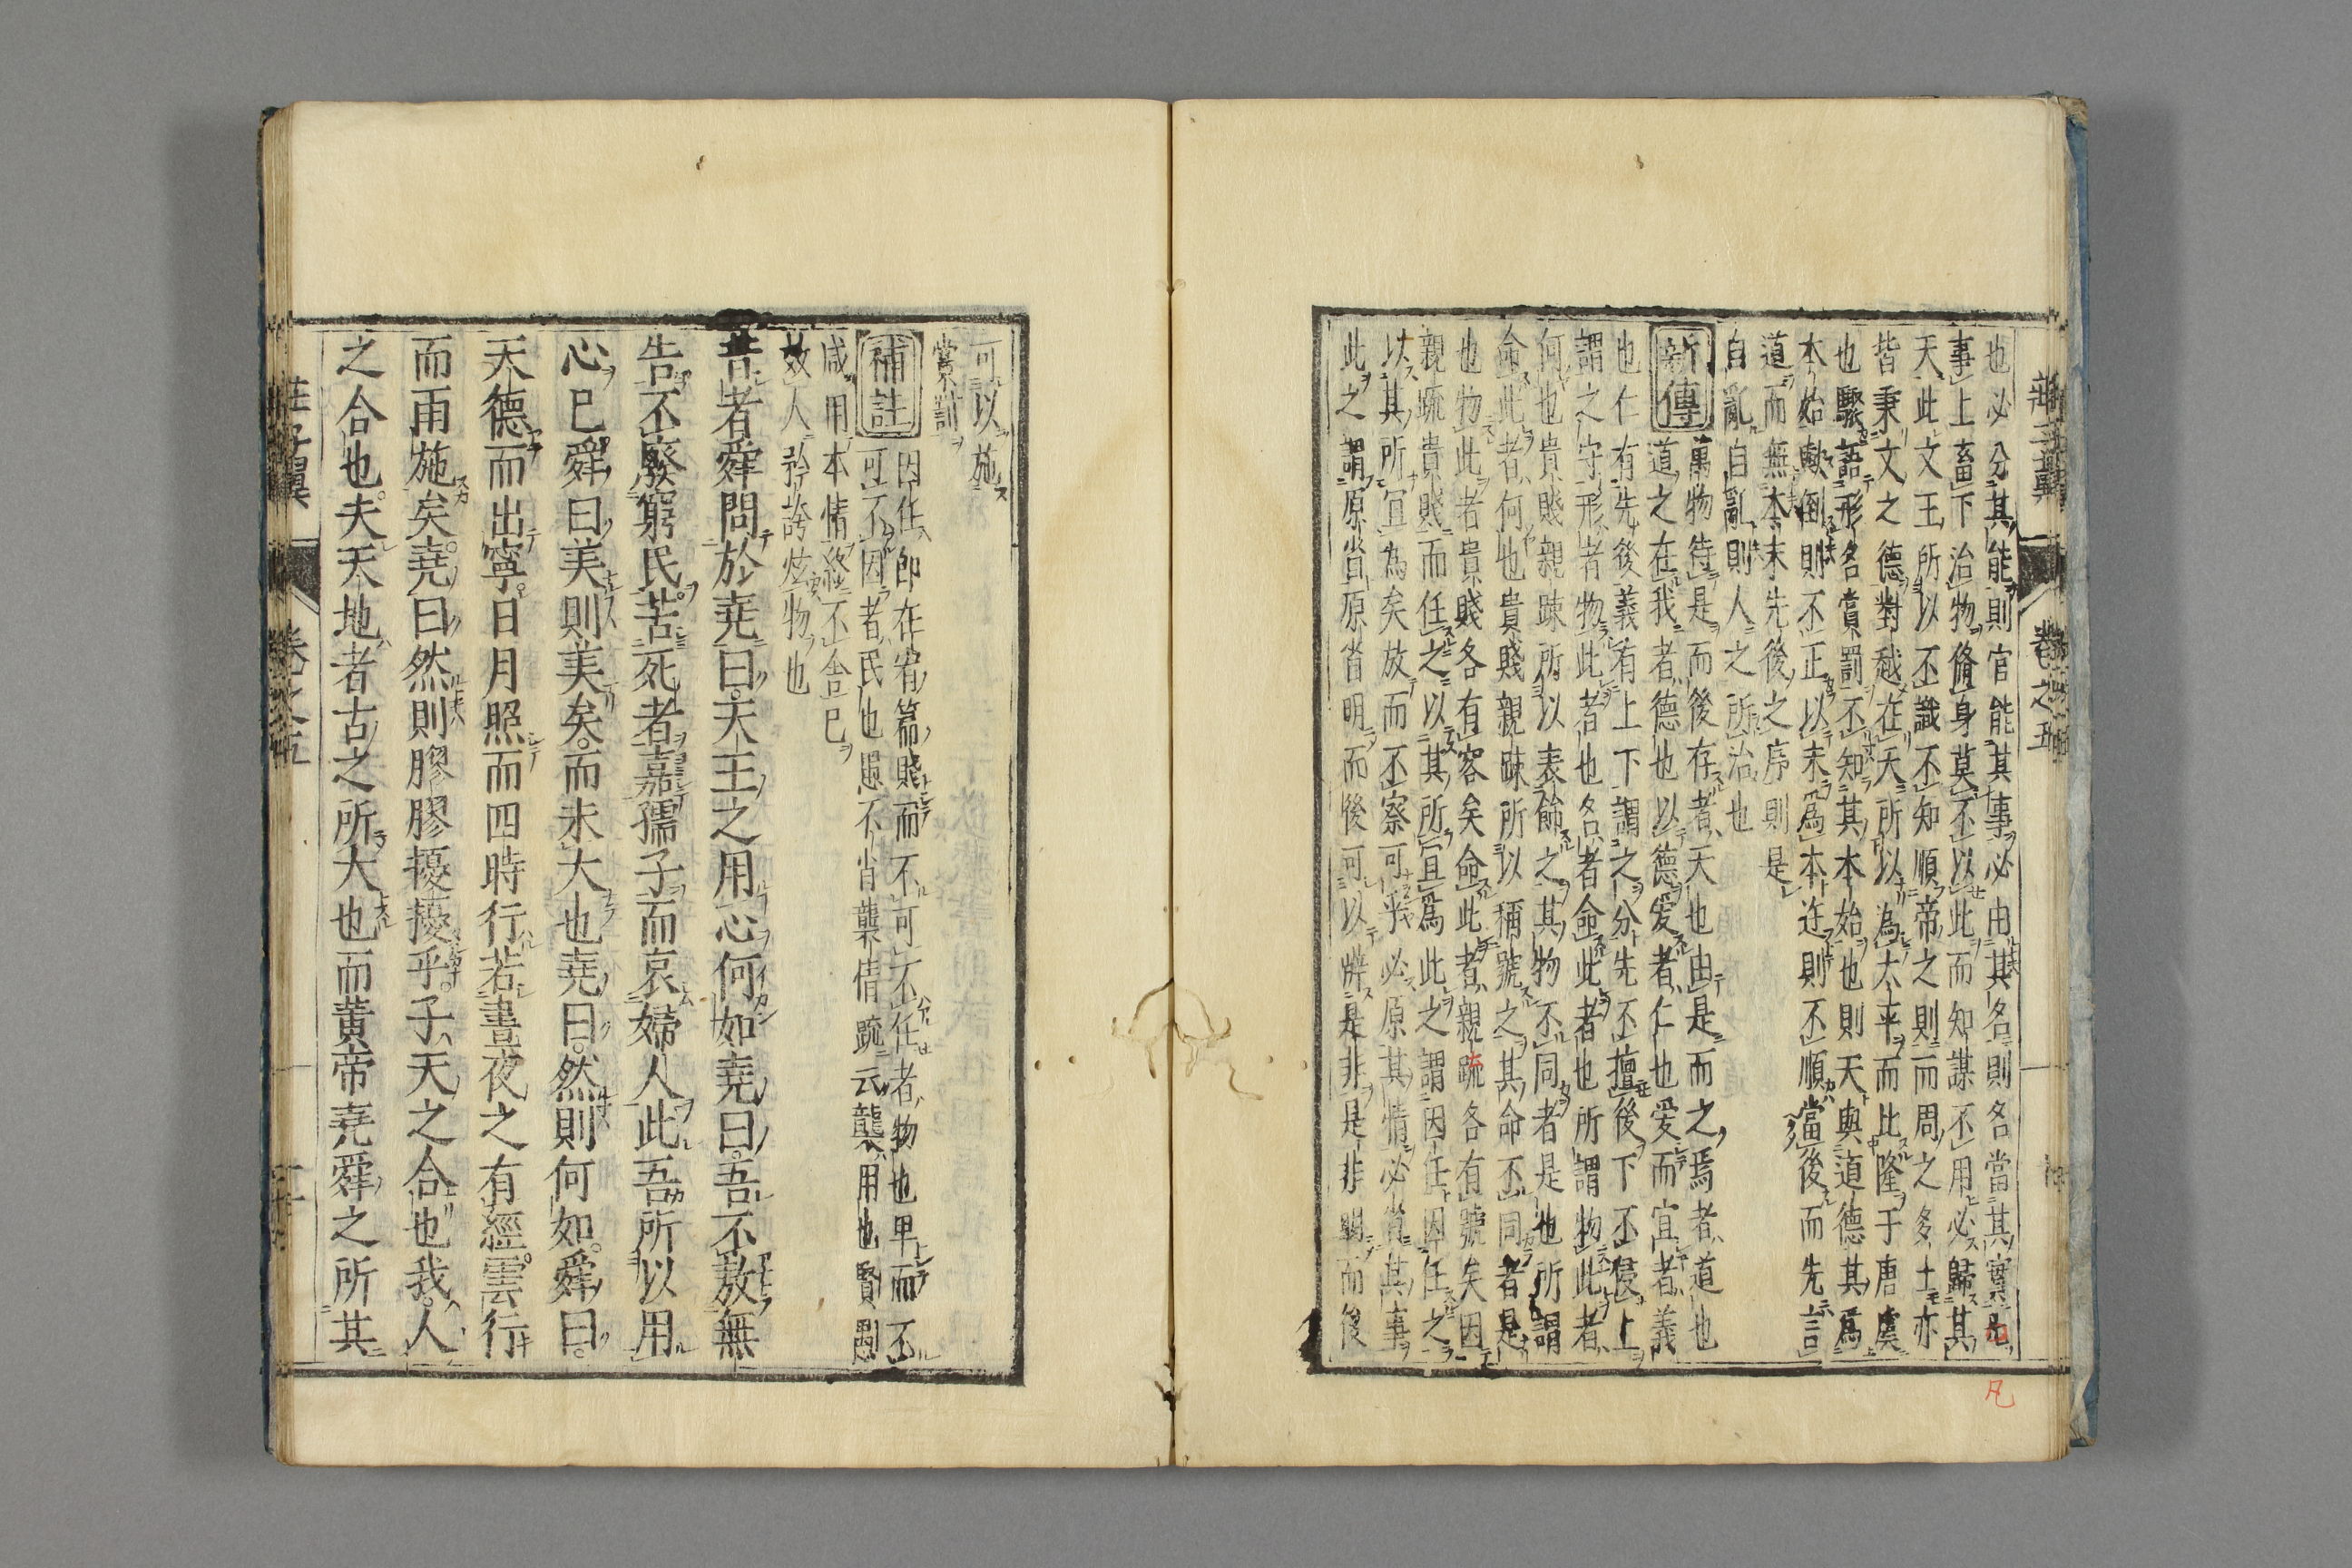 莊子翼 卷之五
也必分其能則官能其事必由其名則名當其實凡
事上畜下治物脩身莫不以此而知謀不用必歸其
天此文王所以不識不知順帝之則而周之多士亦
皆秉文之德對越在天所以為太平而此隆于唐虞
也驟語形名賞罰不知其本始也則天與道德其爲
本始歟倒則不正以末爲本迕則不順當後而先言
道而無本末先後之序則是
自亂自亂則人之所治也
新傳
萬物待是而後存者天也由是而之焉者道也
道之在我者德也以德爱者仁也爱而宜者義
也仁有先後義有上下謂之分先不擅後下不侵上
謂之守形者物此者也名者命此者也所謂物此者
何也貴賤親疎所以表飾之其物不同者是也所謂
命此者何也貴賤親疎所以稱號之其命不同者是
也物此者貴賤各有容矣命此者親疏各有號矣因
親疏貴賤而任之以其所宜爲此之謂因任因任之
以其所宜為矣放而不察可乎必原其情必省其事
此之謂原省原省明而後可以辨是非是非明而後
凡
可以施
賞罰
補註
因任即在宥篇賤而不可不任者物也卑而不
可不因者民也愚不肖襲情疏云襲用也賢愚
咸用本情終不舍已
效人矜誇炫物也
昔者舜問於堯曰天王之用心何如堯曰吾不敖無
告不廢窮民苦死者嘉孺子而哀婦人此吾所以用
心已舜曰美則美矣而未大也堯曰然則何如舜曰
天德而出寧日月照而四時行若晝夜之有經雲行
而雨施矣堯曰然則膠膠擾擾乎子天之合也我人
之合也夫天地者古之所大也而黃帝堯舜之所其
莊子翼 卷之五 二十